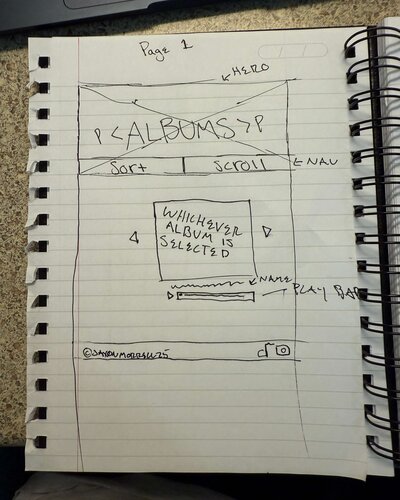 Page 1
HERO
P <ALBUMS> P
Sort Scroll
NAV
WHICHEVER
ALBUM IS
SELECTED
NAME
PLAY BAR